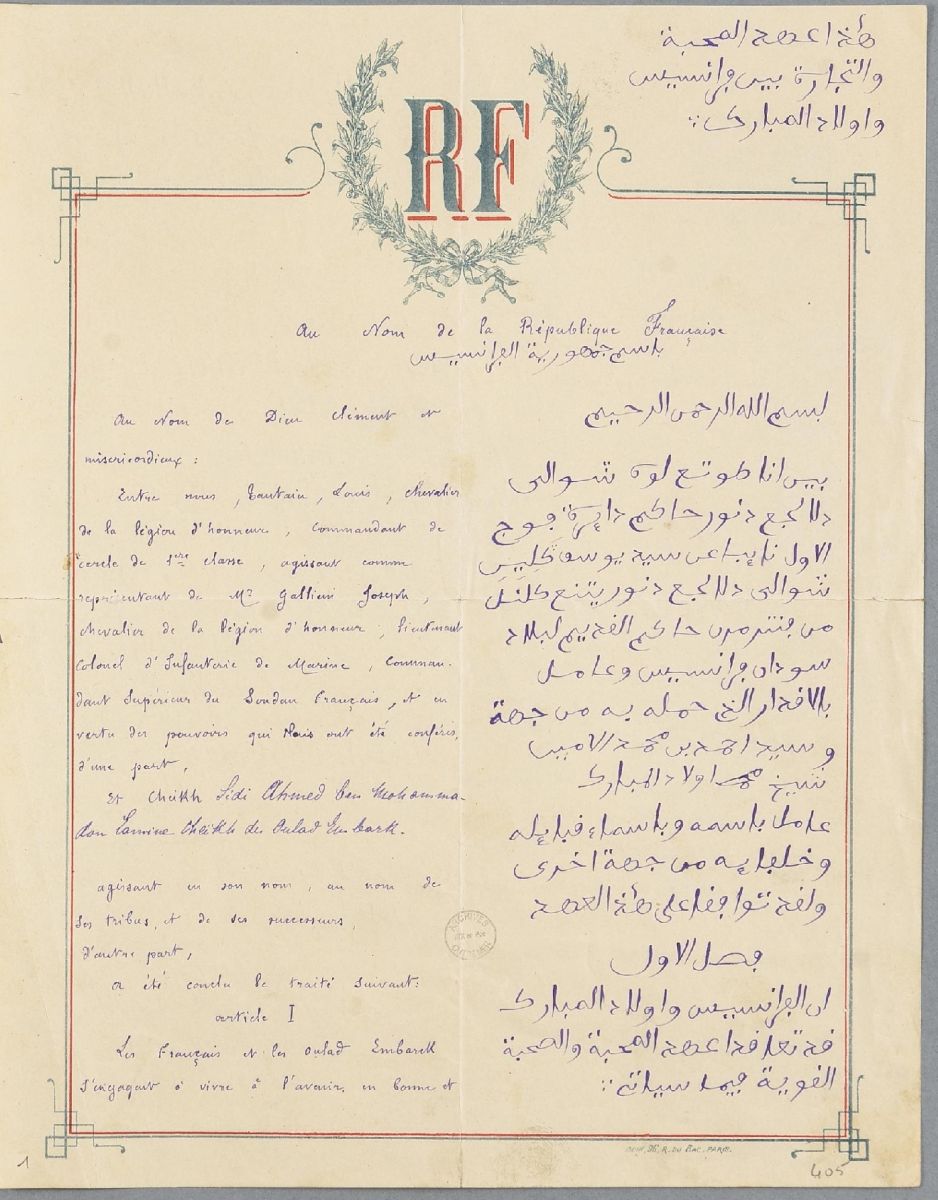 هذا عهد المحبة
والتجارة بين فرانسيس
واولاد المبارك
RF
Au Nom de la République Française
باسم جمهورية الفرانسيس
Au Nom de Dieu Clément et
miséricordieux :
Entre nous, Tautain, Louis, chevalier
de la légion d'honneur, Commandant de
cercle de 1ère classe, agissant comme
représentant de Mr Gallieni Joseph,
chevalier de la légion d'honneur, lieutenant
Colonel d'Infanterie de Marine, Comman-
dant Supérieur du Soudan Français, et en
vertu des pouvoirs qui Nous ont été conférés,
d'une part,
Et Cheikh Sidi Ahmed ben Mohamma-
dou Lamine Cheikh des Oulad Embark.
agissant en son nom, au nom de
ses tribus, et de ses successeurs,
d'autre part,
a été conclu le traité suivant:
article I
Les Français et les Oulad Embarck
s'engagent à vivre à l'avenir en bonne et
بسم الله الرحمن الرحيم
بين انا طوتع لوة شوالى
دلالجع دنور حاكم دايرة فوج
الاول نايبا عن سيد يوسف كليين
شوالى دلالجع دنور يتنع كلنل
من حاكم القديم لبلاد
سودان فرانسيس وعامل
بالاقدار التى حمله به من جهة
وسيد احمد بن محمد الامين
شيخ اولاد المبارك
عامل باسمه وباسماء قبايله
وخلفايه من جهة اخرى
ولقد توافقا على هذا العهد
فصل الاول
ان الفرانسيس واولاد المبارك
قد تعاقدا عهد المحبة والصحبة
القوية فيما سيات
ARCHIVES
96, R. DU BAC, PARIS.
1
405